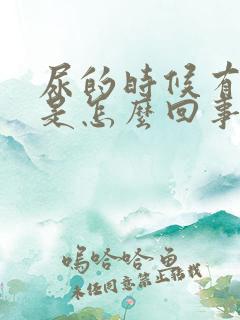 尿的時候有
是怎麼回事
嗚哈哈魚
未经同意禁止转载